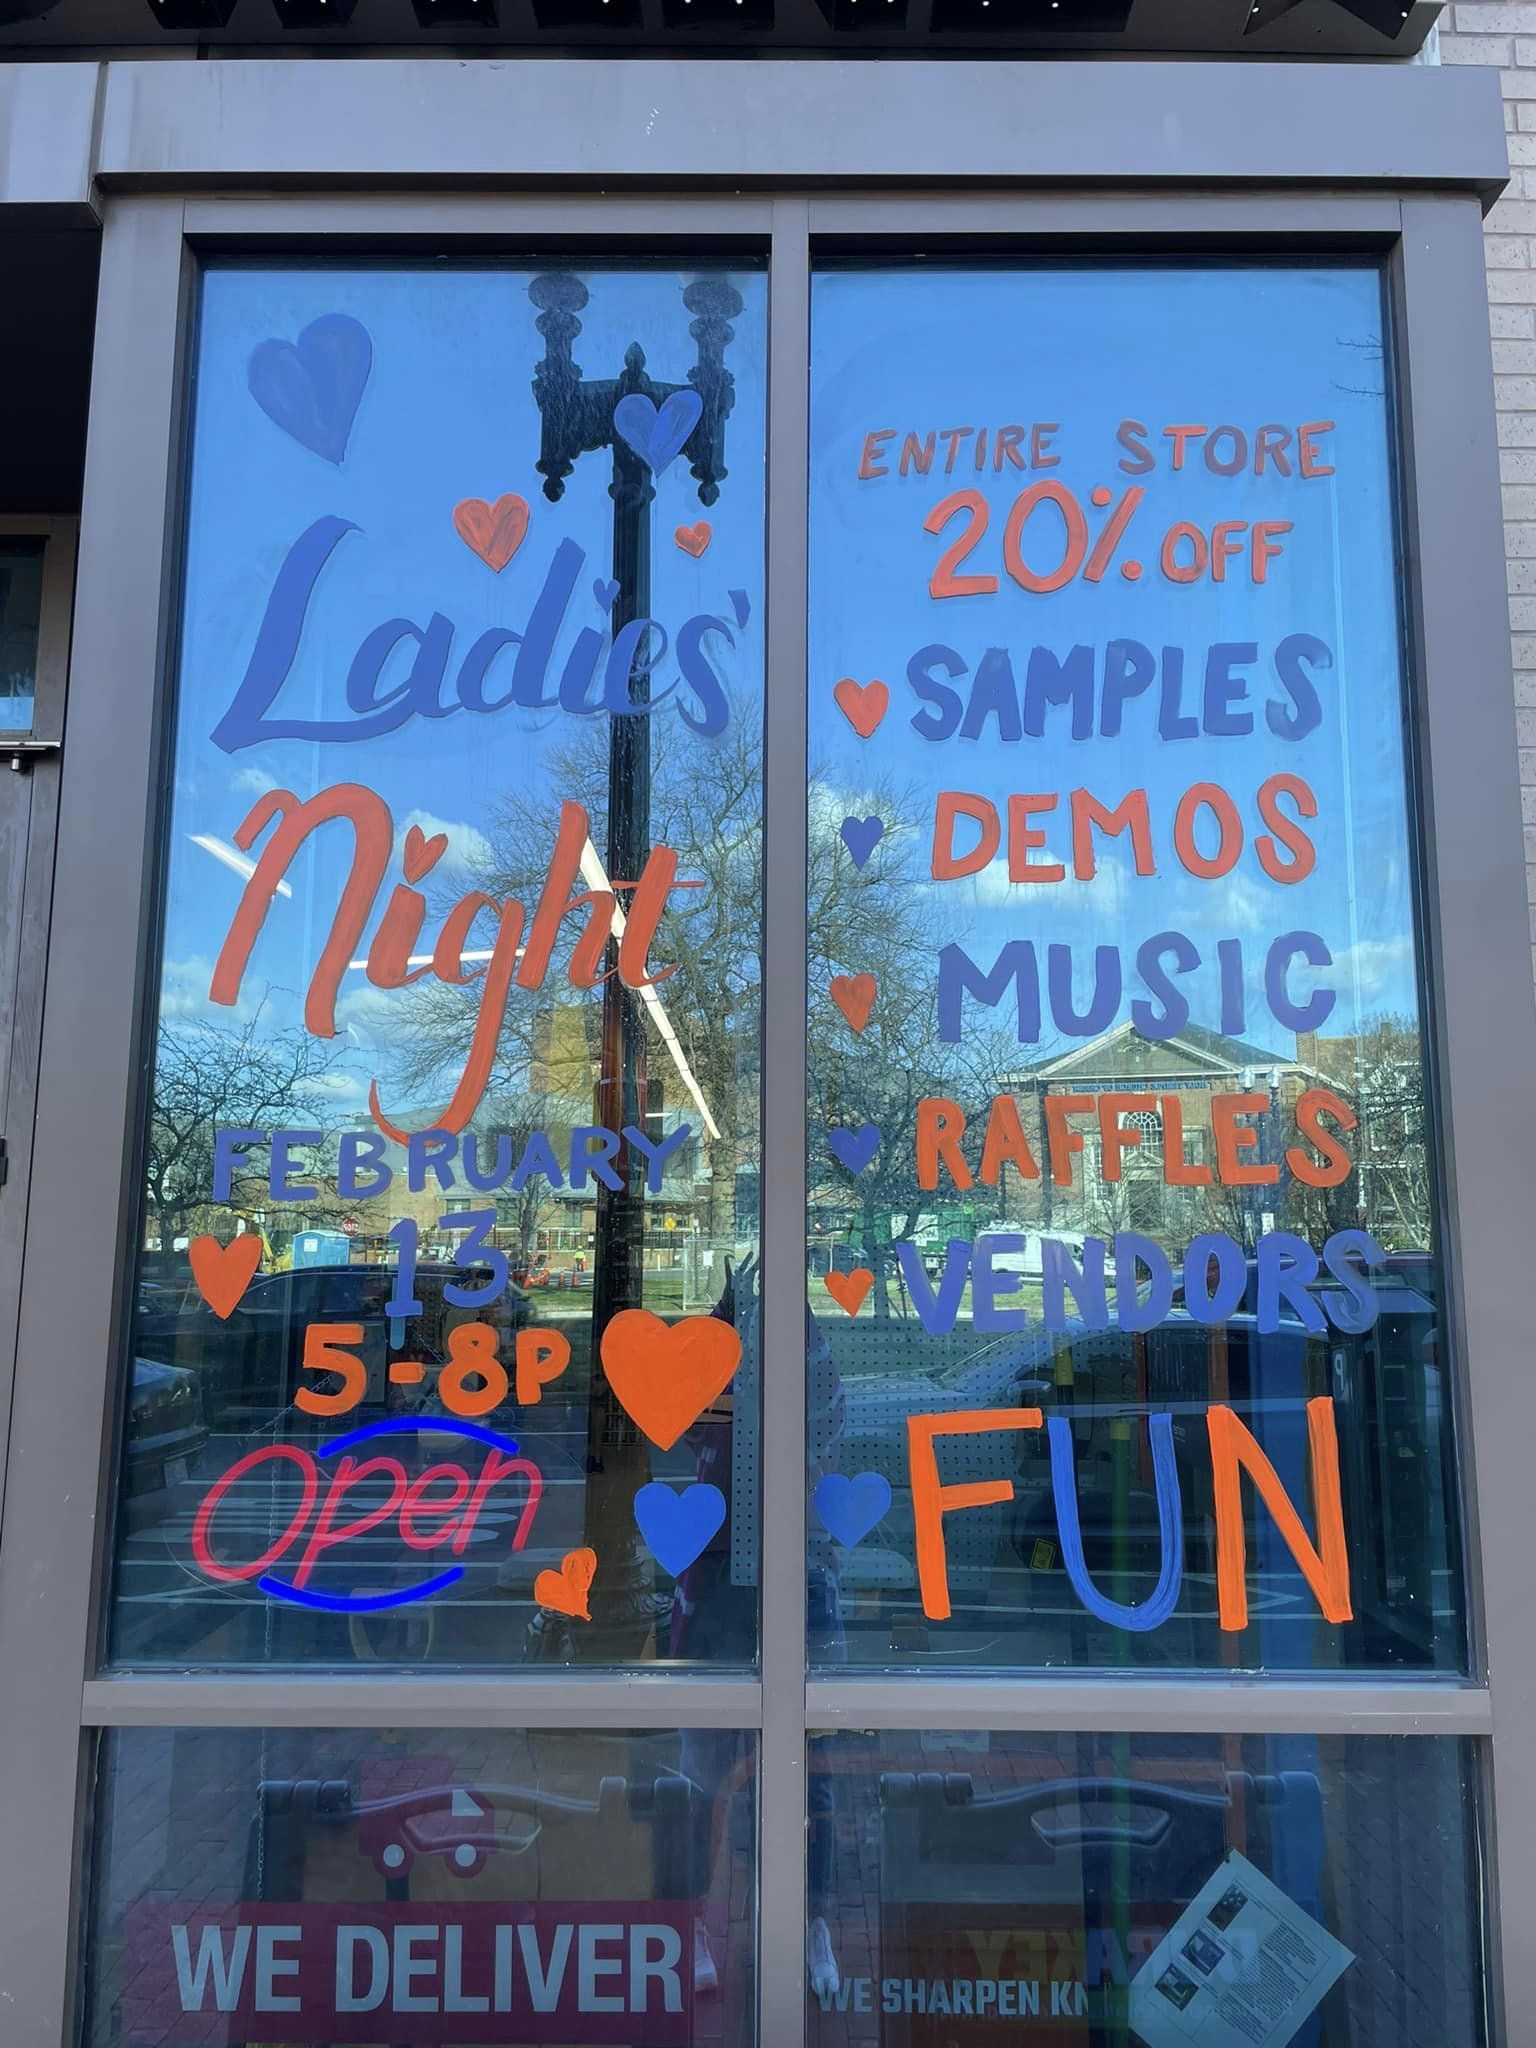 Ladies'
Night
FEBRUARY
13
5-8P
Open
ENTIRE STORE
20% OFF
SAMPLES
DEMOS
MUSIC
RAFFLES
VENDORS
FUN
WE DELIVER
WE SHARPEN